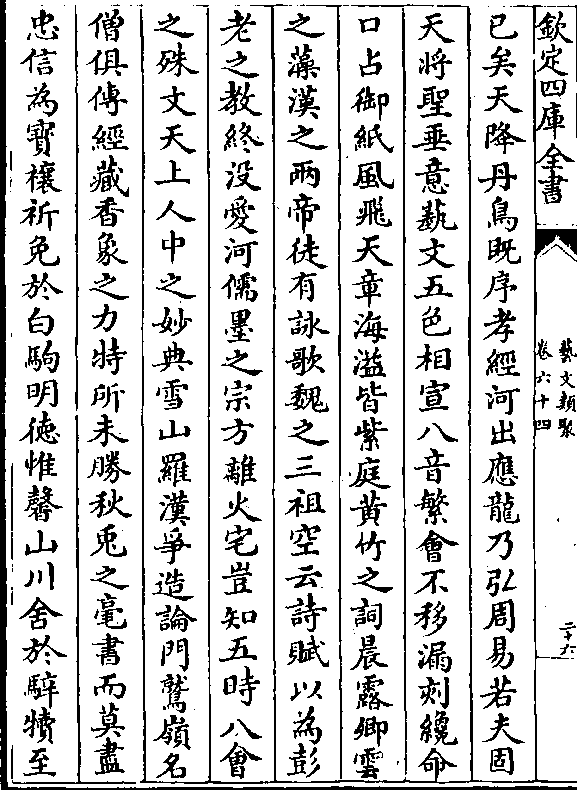 欽定四庫全書
藝文類聚
卷六十四
二十六
已矣天降丹鳥既序孝經河出應龍乃弘周易若夫固
天將聖垂意藝文五色相宣八音繁會不移漏刻纔命
口占御紙風飛天章海溢皆紫庭黄竹之詞晨露卿雲
之藻漢之兩帝徒有詠歌魏之三祖空云詩賦以為彭
老之教終没愛河儒墨之宗方離火宅豈知五時八會
之殊文天上人中之妙典雪山羅漢爭造論門鷲嶺名
僧俱傳經藏香象之力特所未勝秋兎之毫書而莫盡
忠信為寳禳祈免於白駒明德惟馨山川舍於騂犢至